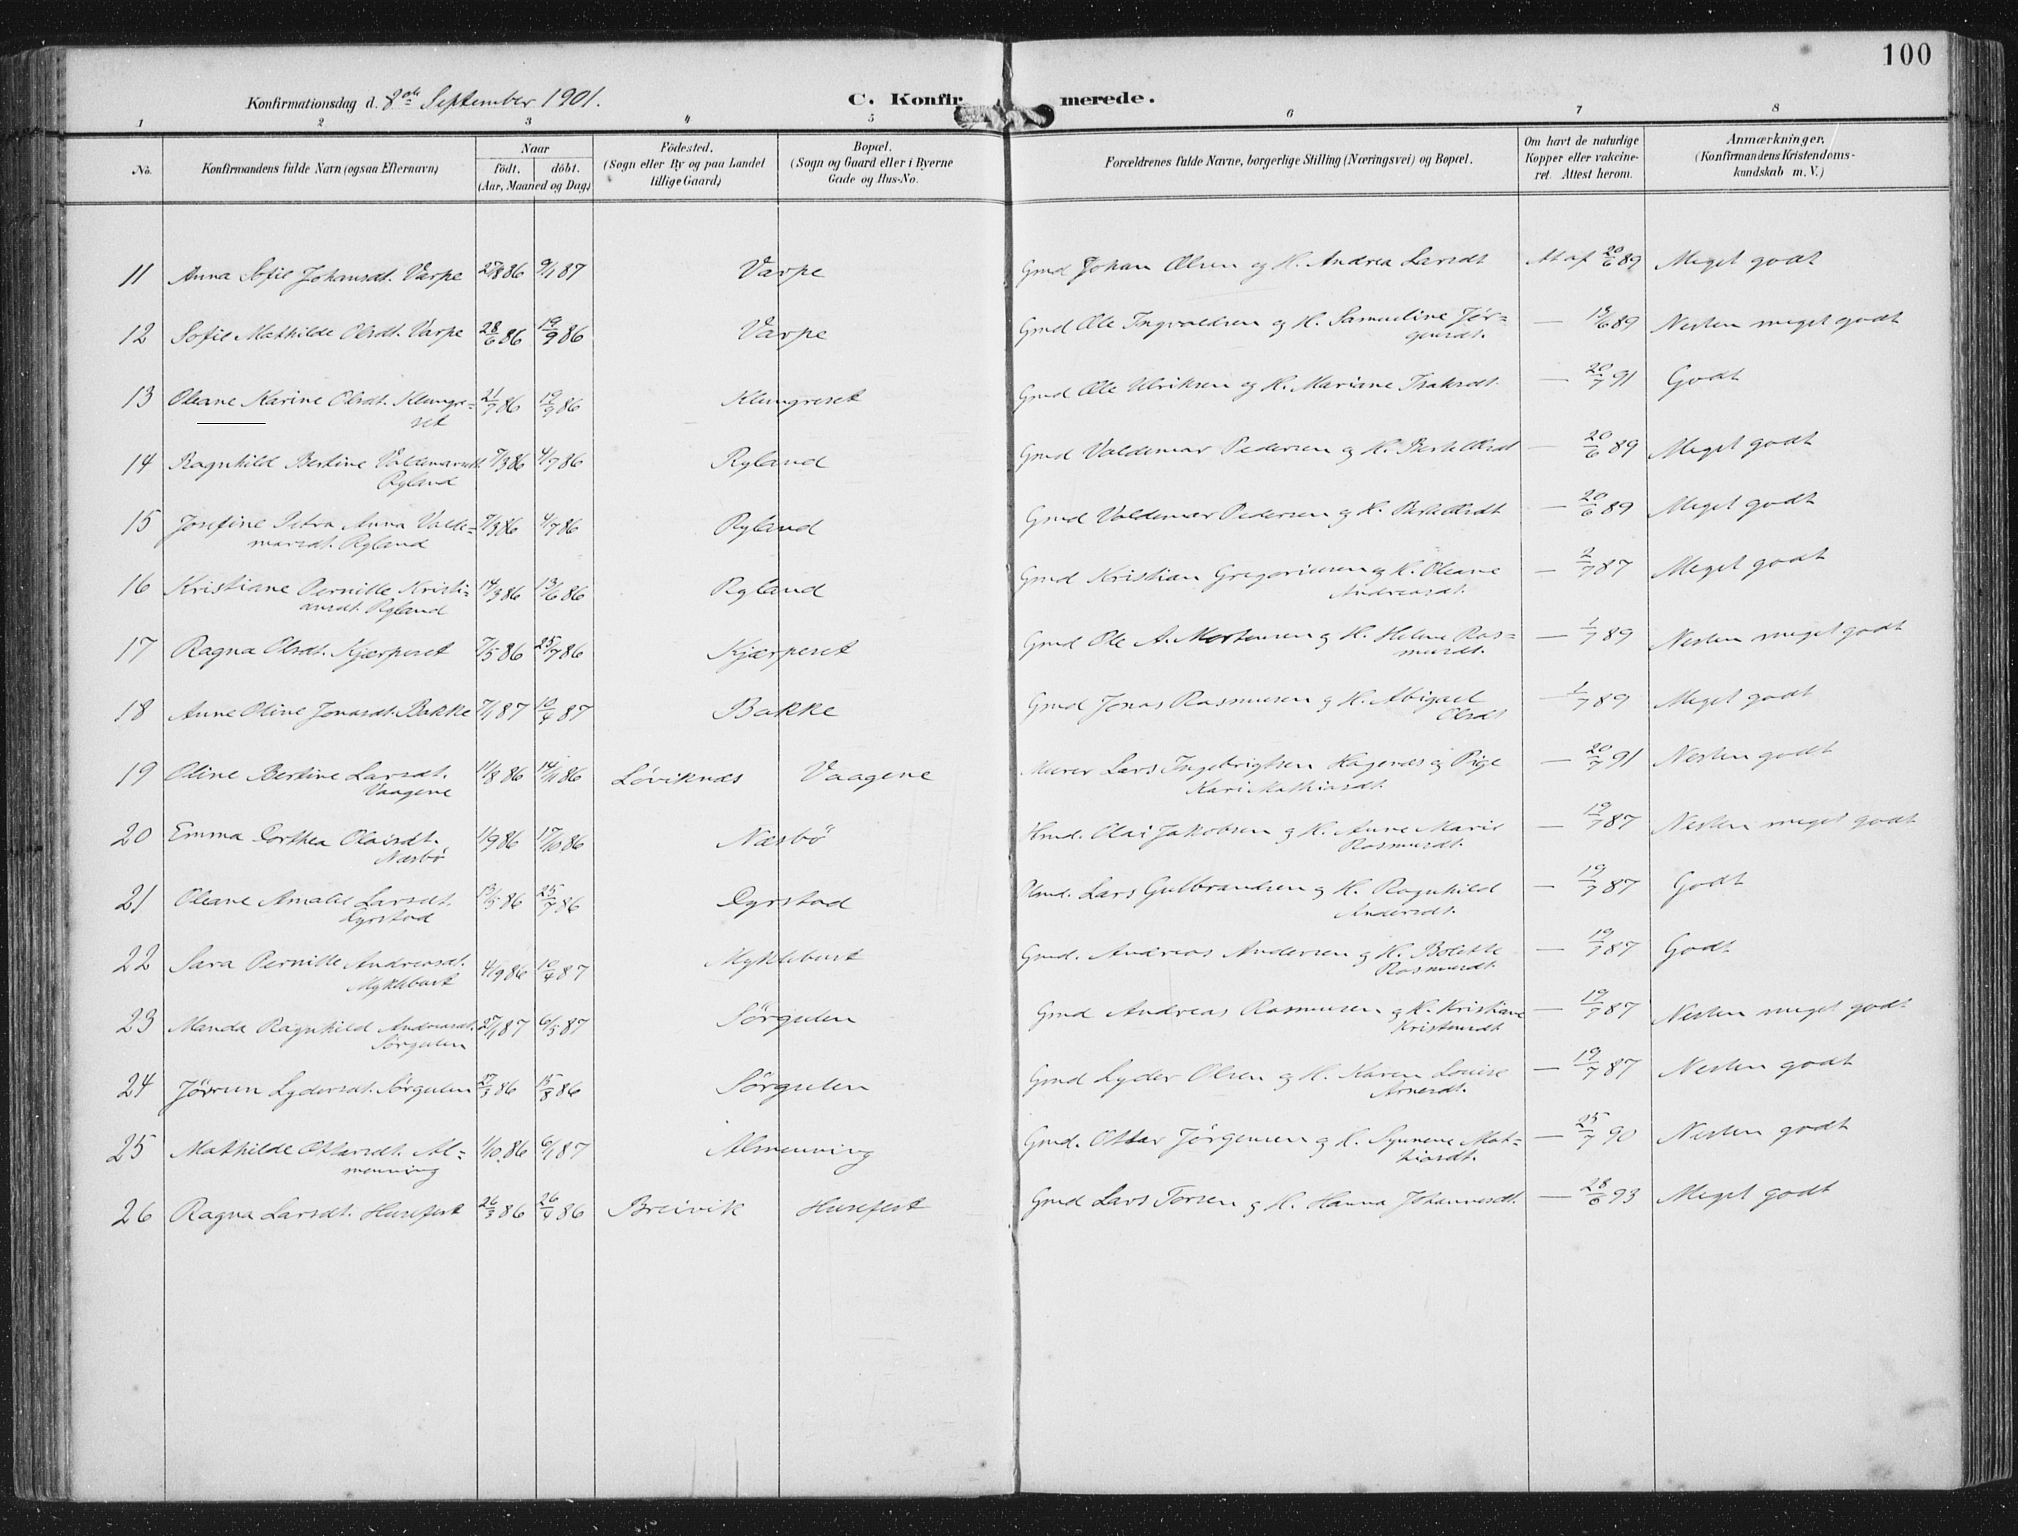 100
Konfirmationsdag d. 8de September 1901.
C. Konfirmerede.
1 2 3 4 5 6 7 8
No. Konfirmandens fulde Navn (ogsaa Efternavn) Naar født. døbt. (Aar, Maaned og Dag) Fødested. (Sogn eller By og paa Landet tillige Gaard) Bopæl. (Sogn og Gaard eller i Byerne Gade og Hus-No. Forældrenes fulde Navne, borgerlige Stilling (Næringsvei) og Bopæl. Om havt de naturlige Kopper eller vakcineret. Attest herom. Anmærkninger. (Konfirmandens Kristendomskundskab m. V.)
11 Anna Sofie Johansdt. Varpe 27/8 86 9/1 87 Varpe Gmd Johan Olsen og H. Andrea Larsdt At af 20/6 89 Meget godt
12 Sofie Mathilde Olsdt. Varpe 28/6 86 19/9 86 Varpe Gmd Ole Ingvaldsen og H. Samueline Jør=
gensdt. — 13/6 89 Nesten meget godt
13 Oleane Karine Olsdt. Klungre=
set 21/7 86 19/9 86 Klungreset Gmd Ole Ulriksen og H. Mariane Isaksdt. — 20/7 91 Godt
14 Ragnhild Bertine Valdemarsdt.
Ryland 7/3 86 4/7 86 Ryland Gmd Valdemar Pedersen og H. Berte Olsdt — 20/6 89 Meget godt
15 Josefine Petra Anna Valde=
marsdt. Ryland 7/3 86 4/7 86 Ryland Gmd Valdemar Pedersen og H. Berte Olsdt — 20/6 89 Meget godt
16 Kristiane Pernille Kristi=
ansdt. Ryland 14/3 86 13/6 86 Ryland Gmd Kristian Gregoriusen og H. Oleane
Andreasdt. — 2/7 87 Meget godt
17 Ragna Olsdt. Kjærpeset 7/5 86 25/7 86 Kjærpeset Gmd Ole A. Mortensen og H. Helene Ras=
musdt. — 1/7 89 Nesten meget godt
18 Anne Oline Jonasdt. Bakke 7/1 87 10/4 87 Bakke Gmd Jonas Rasmusen og H. Abigael
Olsdt — 1/7 89 Meget godt
19 Oline Bertine Larsdt.
Vaagene 11/8 86 14/11 86 Løviknæs Vaagene Murer Lars Ingebrigtsen Hagenæs og Pige
Kari Mathiasdt. — 20/7 91 Nesten godt
20 Emma Dorthea Olaisdt.
Næsbø 1/9 86 17/10 86 Næsbø Hmd. Olai Jakobsen og H. Anne Marie
Rasmusdt. — 19/7 87 Nesten meget godt
21 Oleane Amalie Larsdt.
Dyrstad 13/5 86 25/7 86 Dyrstad Lars Gulbrandsen og H. Ragnhild
Andersdt. — 19/7 87 Godt
22 Sara Pernille Andreasdt.
Myklebust 4/9 86 10/4 87 Myklebust Gmd. Andreas Andersen og H. Bolette
Rasmusdt. — 19/7 87 Godt
23 Manda Ragnhild Andreasdt.
Sørgulen 27/1 87 6/5 87 Sørgulen Gmd Andreas Rasmusen og H. Kristiane
Kristensdt. — 19/7 87 Nesten meget godt
24 Jørun Lydersdt. Sørgulen 27/3 86 15/8 86 Sørgulen Gmd Lyder Olsen og H. Karen Louise
Arnesdt. — 19/7 87 Nesten godt
25 Mathilde Ottarsdt. Al=
menning 1/10 86 6/1 87 Almenning Gmd. Ottar Jørgensen og H. Synneve Mat=
hiasdt. — 25/7 90 Nesten godt
26 Ragna Larsdt. Husefest 26/3 86 26/4 86 Breivik Husefest Gmd Lars Torsen og H. Hanna Johannesdt. — 28/6 93 Meget godt